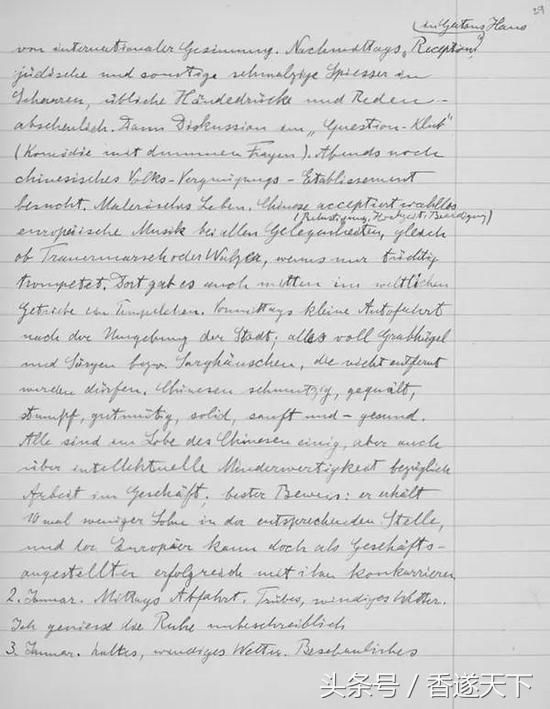 29
in Gattons Haus
von internationaler Gesinnung. Nachmittags „Reception",
jüdische und sonstige schmalzige Spiesser in
Scharen, übliche Händedrücke und Reden -
abscheulich. Dann Diskussion im „Question-Klub"
(Komödie mit dummen Fragen). Abends noch
chinesisches Volks-Vergnügungs-Etablissement
besucht. Malerisches Leben. Chinese acceptiert wahllos
(Belustigung, Hochzeit, Beerdigung)
europäische Musik bei allen Gelegenheiten, gleich
ob Trauermarsch oder Walzer, wenns nur tüchtig
trompetet. Dort gab es auch mitten im weltlichen
Getriebe ein Tempelchen. Vormittags kleine Autofahrt
nach der Umgebung der Stadt; alles voll Grabhügel
und Särgen bezw. Sarghäuschen, die nicht entfernt
werden dürfen. Chinesen schmutzig, gequält,
stumpf, gutmütig, solid, sanft und - gesund.
Alle sind im Lobe des Chinesen einig, aber auch
über intellektuelle Minderwertigkeit bezüglich
Arbeit im Geschäft; bester Beweis: er erhält
10 mal weniger Lohn in der entsprechenden Stelle,
und der Europäer kann doch als Geschäfts-
angestellter erfolgreich mit ihm konkurrieren
2. Januar. Mittags Abfahrt. Trübes, windiges Wetter.
Ich geniesse die Ruhe unbeschreiblich
3. Januar. kaltes, windiges Wetter. Beschauliches
头条号 / 香遂天下